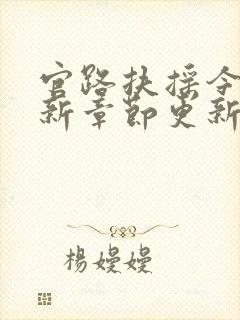 官路扶摇今
新章節更新
楊嫚嫚